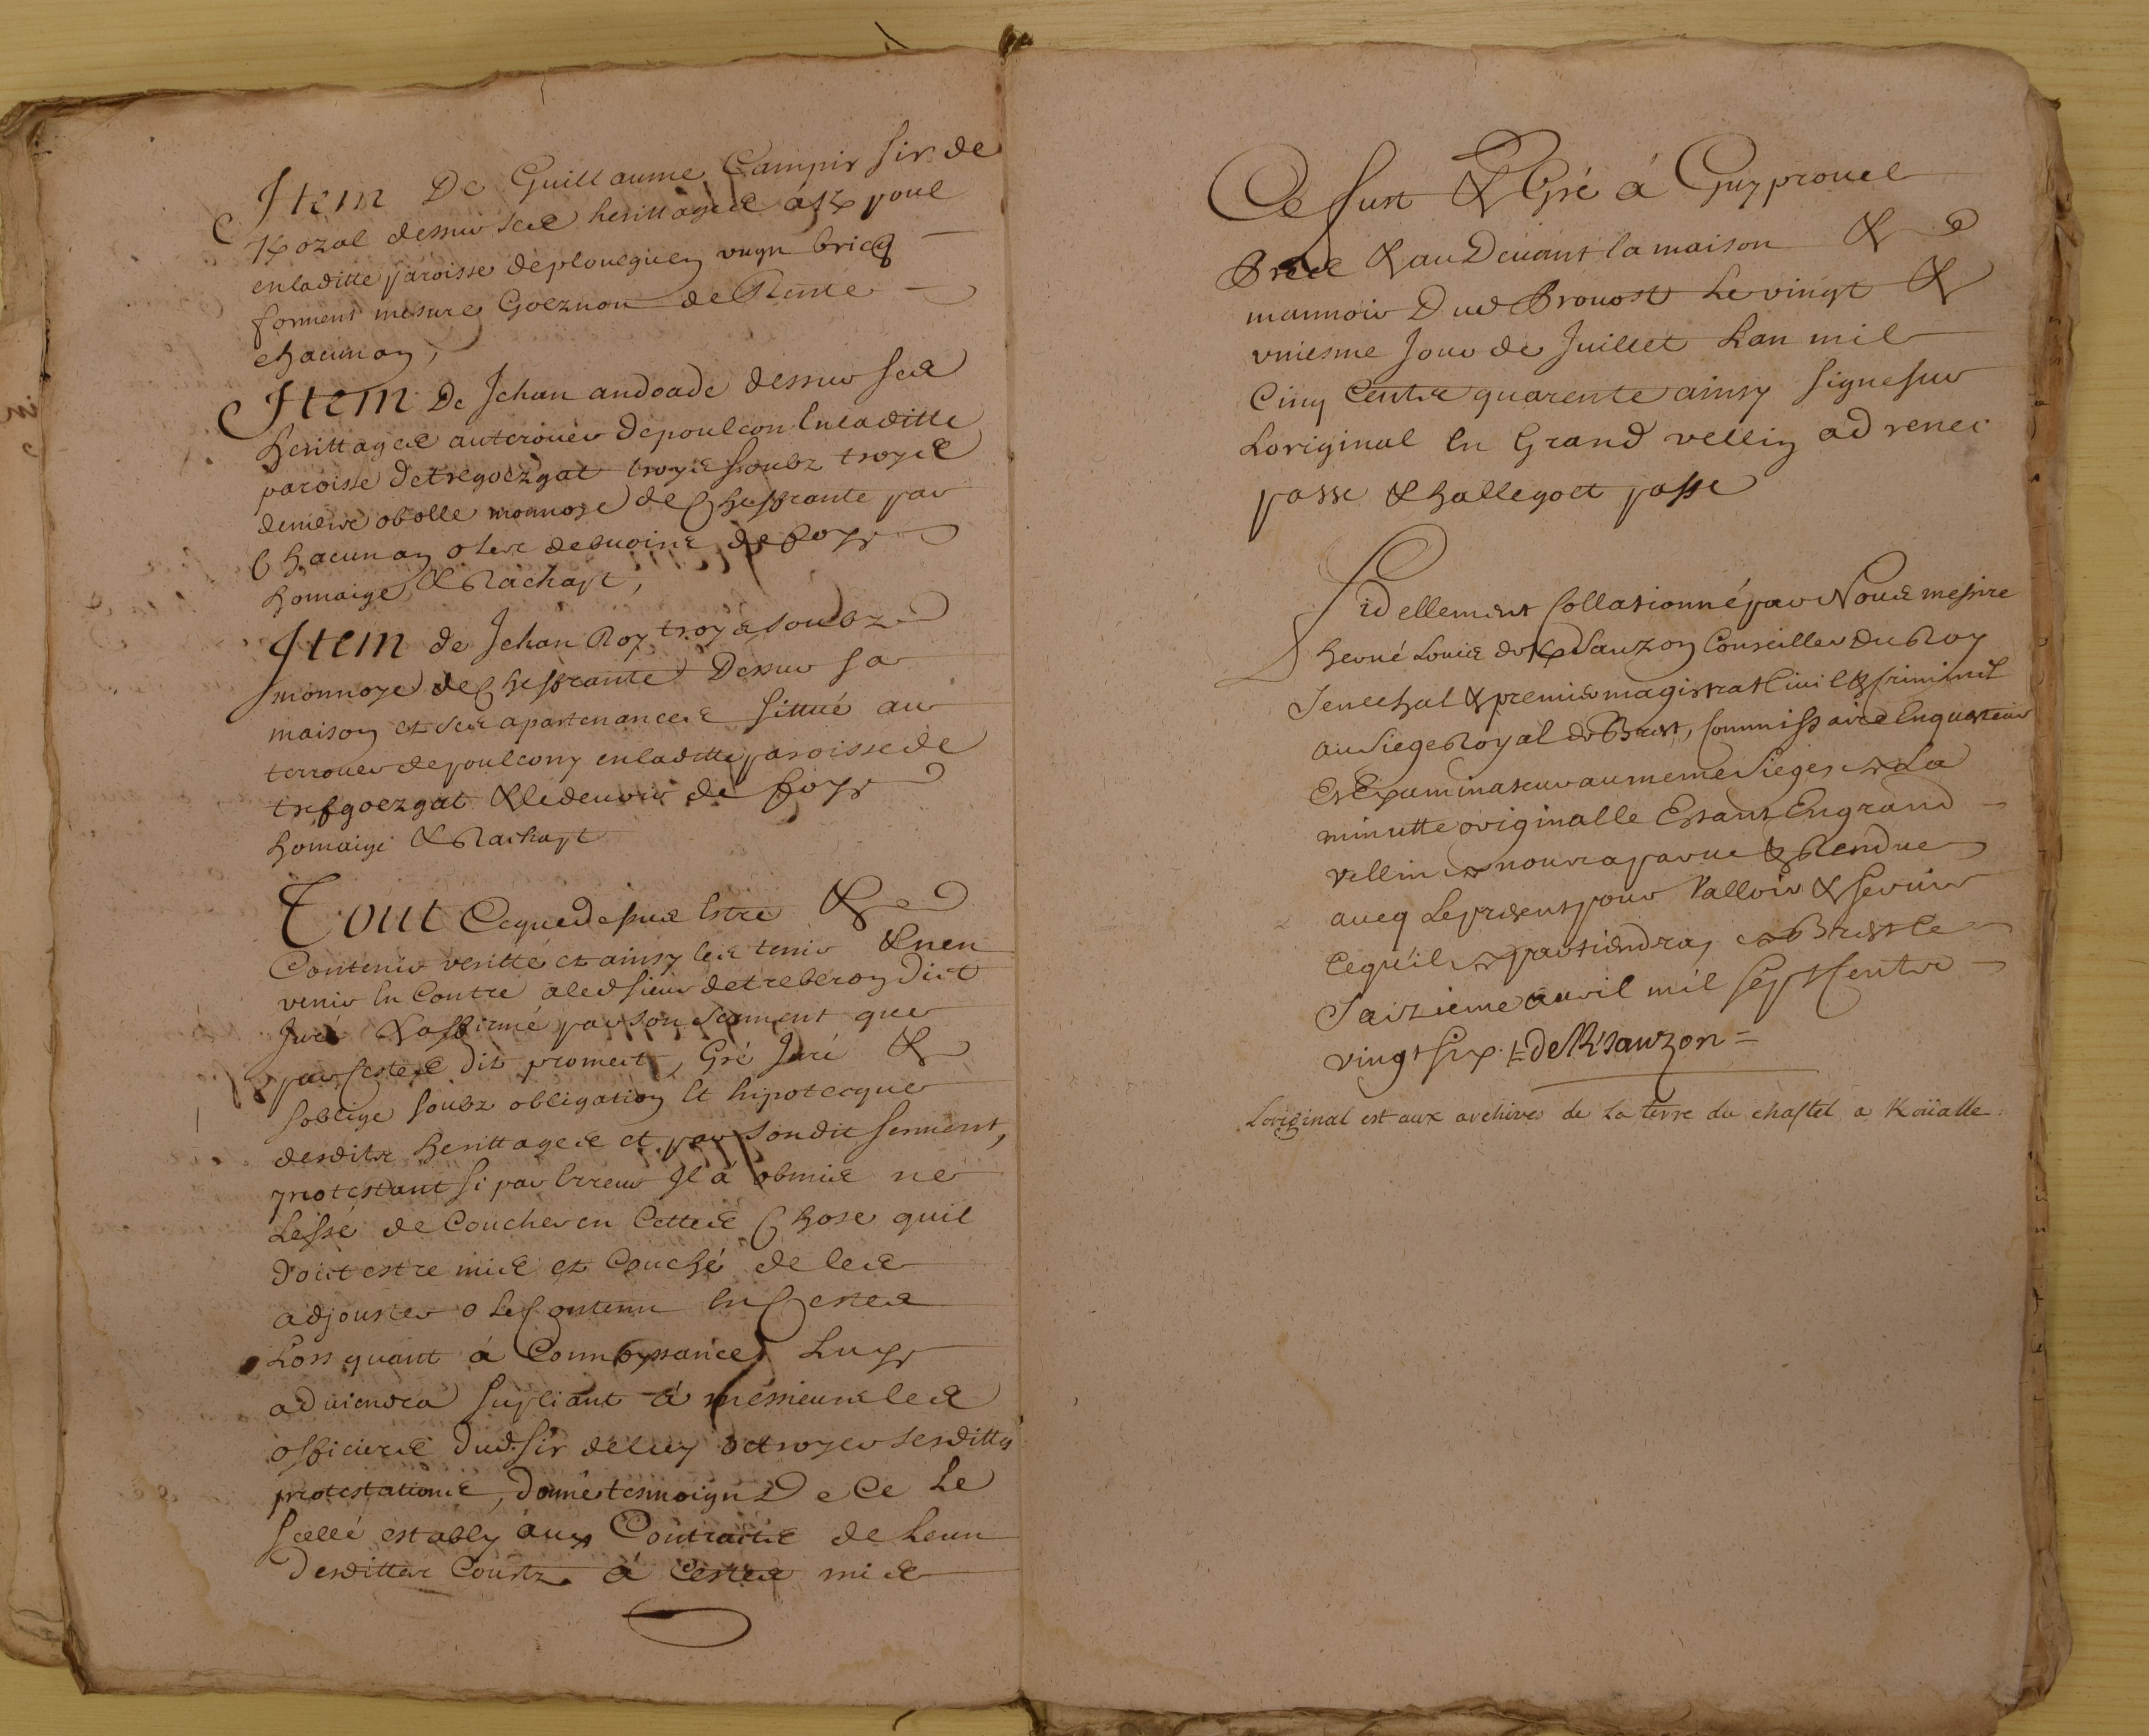 Item De Guillaume Campir sir de
Kozal dessur ses herittages à K poul
en laditte paroisse de ploueguen, vngn bricq
forment mesure Goeznou de Rente
chacun an,
Item De Jehan andoade dessur ses
herittages au terouer de poulcon En laditte
paroisse de tregoezgat troys soubz troys
deniers obolle monnoye de Cheffrante par
Chacun an o les debuoirs de foy
homaige & Rachapt,
Item de Jehan Roy troys soubz
monnoye de Cheffrante Dessur sa
maison et ses apartenances sittué au
terrouer de poulcony en laditte paroisse de
trefgoezgat & le deuoir de foy
homaige & Rachapt
Tout Ce que dessus Estre &
Contenir verité et ainsy les tenir & n en
venir En Contre a led sieur de treberon Dict
Juré & affirmé par son serment que
par Cestes dit promect, Gré Juré &
soblige soubz obligation Et hipotecque
desdits herittages et par sondit serment,
protestant si par Erreur Jl à obmis ne
Lessé de Coucher en Cettes Chose quil
doit estre mis et Couché de les
adjouster o le Contenu En Cestes
Lors quant à Connoyssance Luy
aduiendra supliant à messieurs les
officiers dud. sir de luy octroyer sesdittes
protestations, donné tesmoign De Ce Le
scellé estably aux Contracts de Leun
Desdittes Courtz à Cestes mis
Ce fust & Gré à Guyprouel
pres & au Deuant la maison &
mannoir Dud Prouost Le vingt &
vniesme Jour de Juillet Lan mil
Cinq Cents quarente ainsy signe sur
Loriginal En Grand vellin ad renei
passe & hallegoet passe
Fidellement Collationné par Nous messire
herué Louis de Klauzon Conseiller du Roy
Senechal & premier magistrat Ciuil & Criminel
au siege Royal de Brest, Commissaire Enquesteur
Et Examinateur au meme siege, La
minutte originalle Estant En grand
vellin nous aparue & Rendue
aueq Le present pour valloir & seruir
Ce qu'il apartiendra, a Brest le
saizieme auril mil sept Cents
vingt six. de Klauzon =
Loriginal est aux archives de la terre du chastel a Koüalle.